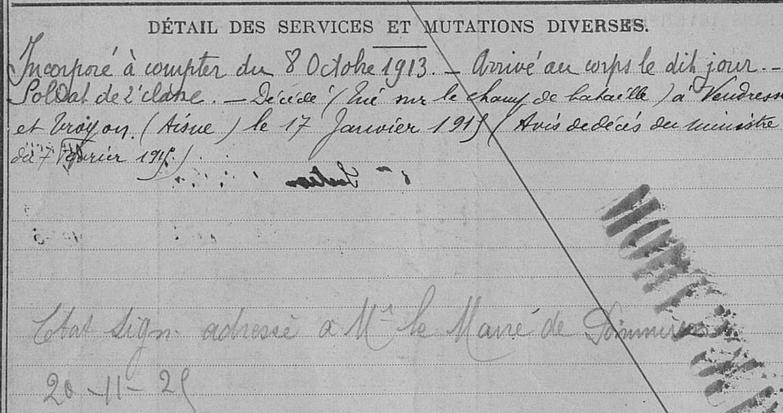 DÉTAIL DES SERVICES ET MUTATIONS DIVERSES.
Incorporé à compter du 8 Octobre 1913. — Arrivé au corps le dit jour. —
Soldat de 2e classe. — Décédé (Tué sur le champ de bataille) à Vendresse
et Troyon. (Aisne) le 17 Janvier 1915 (Avis de décès du ministre
du 7 Février 1915.)
Etat sign. adressé à Mr le Maire de
20-11-25
MORT